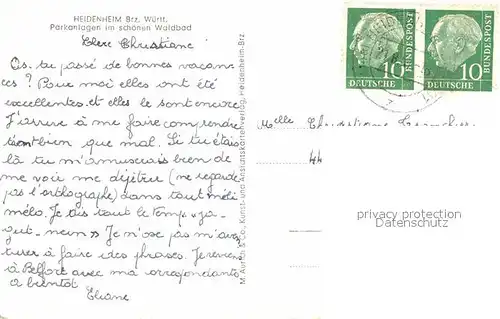 HEIDENHEIM Brz. Württ.
Parkanlagen im schönen Waldbad
Chère Christiane
As. tu passé de bonnes vacan-
ces? Pour moi elles ont été
excellentes et elles le sont encore
J'arrive à me faire comprendre
tant bien que mal. Si tu étais
là tu m'amuserais bien de
me voir me (ne regarde
pas l'orthographe) dans tout méli
mélo. Je dis tout le temps "ya-
gut- nein" Je n'ose pas m'aven
turer à faire des phrases. Je reviens
à Belfort avec ma correspondante
à bientôt
Eliane
M. & Co., Kunst- und Ansichtskartenverlag, Heidenheim-Brz.
DEUTSCHE BUNDESPOST 10
DEUTSCHE BUNDESPOST 10
Melle Christiane
privacy protection
Datenschutz